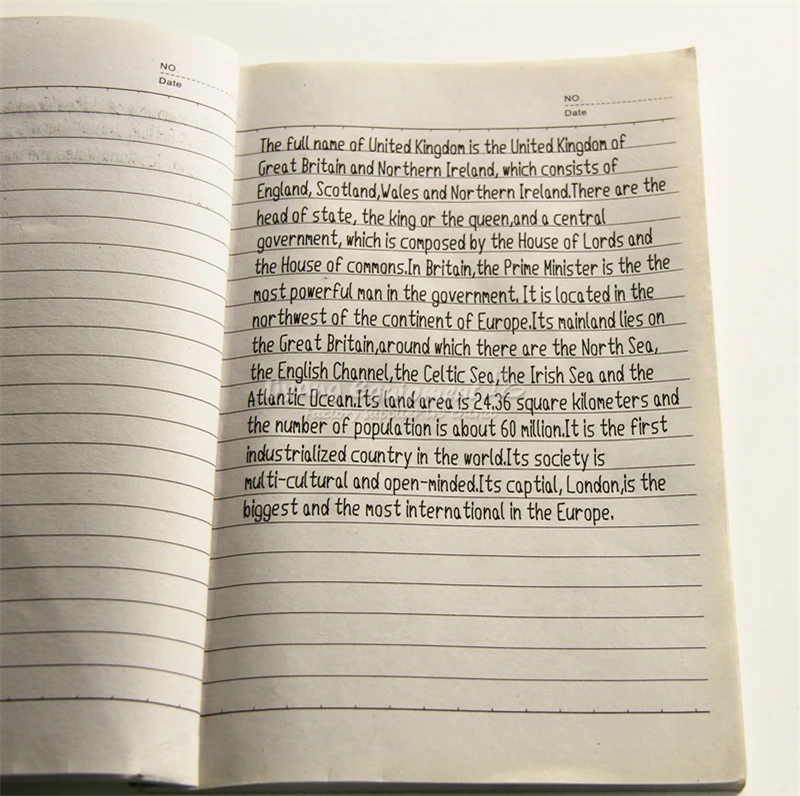 NO
Date
NO
Date
The full name of United Kingdom is the United Kingdom of
Great Britain and Northern Ireland, which consists of
England, Scotland,Wales and Northern Ireland.There are the
head of state, the king or the queen,and a central
government, which is composed by the House of Lords and
the House of commons.In Britain,the Prime Minister is the the
most powerful man in the government. It is located in the
northwest of the continent of Europe.Its mainland lies on
the Great Britain,around which there are the North Sea,
the English Channel,the Celtic Sea,the Irish Sea and the
Atlantic Ocean.Its land area is 24.36 square kilometers and
the number of population is about 60 million.It is the first
industrialized country in the world.Its society is
multi-cultural and open-minded.Its captial, London,is the
biggest and the most international in the Europe.